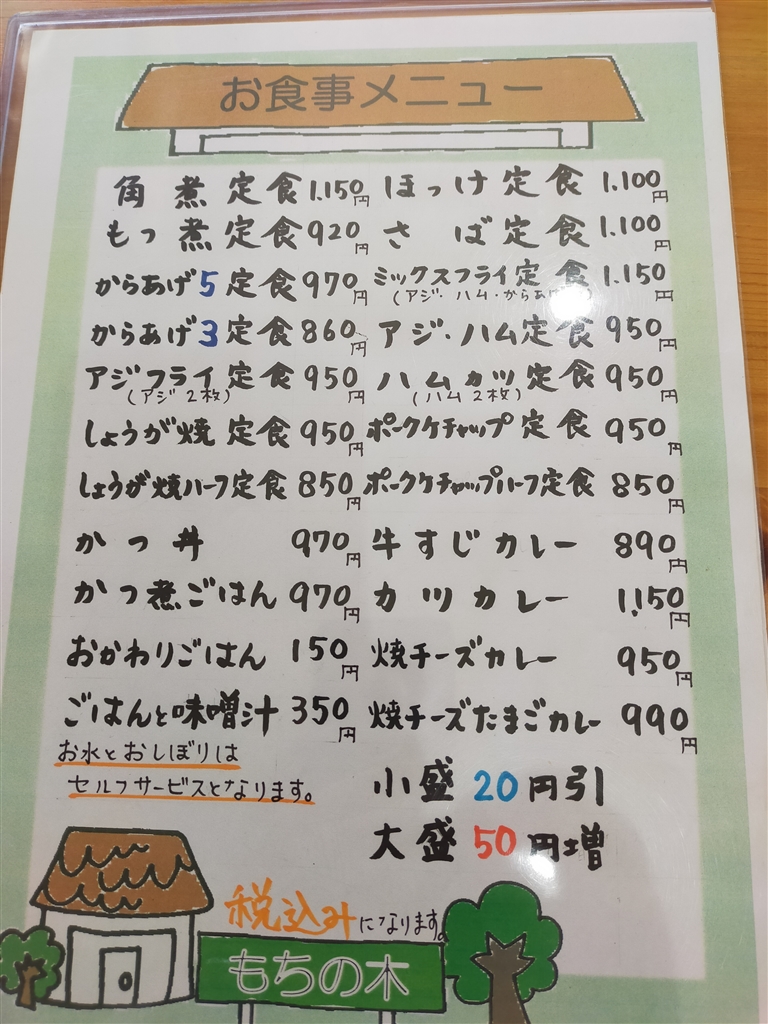 お食事メニュー
角煮定食 1.150円
もつ煮定食 920円
からあげ5定食 970円
からあげ3定食 860円
アジフライ定食 950円
(アジ2枚)
しょうが焼定食 950円
しょうが焼ハーフ定食 850円
かつ丼 970円
かつ煮ごはん 970円
おかわりごはん 150円
ごはんと味噌汁 350円
お水とおしぼりは
セルフサービスとなります。
ほっけ定食 1.100円
さば定食 1.100円
ミックスフライ定食 1.150円
(アジ・ハム・からあげ
アジ・ハム定食 950円
ハムカツ定食 950円
(ハム2枚)
ポークケチャップ定食 950円
ポークケチャップハーフ定食 850円
牛すじカレー 890円
カツカレー 1.150円
焼チーズカレー 950円
焼チーズたまごカレー 990円
小盛20円引
大盛50円増
税込みになります。
もちの木